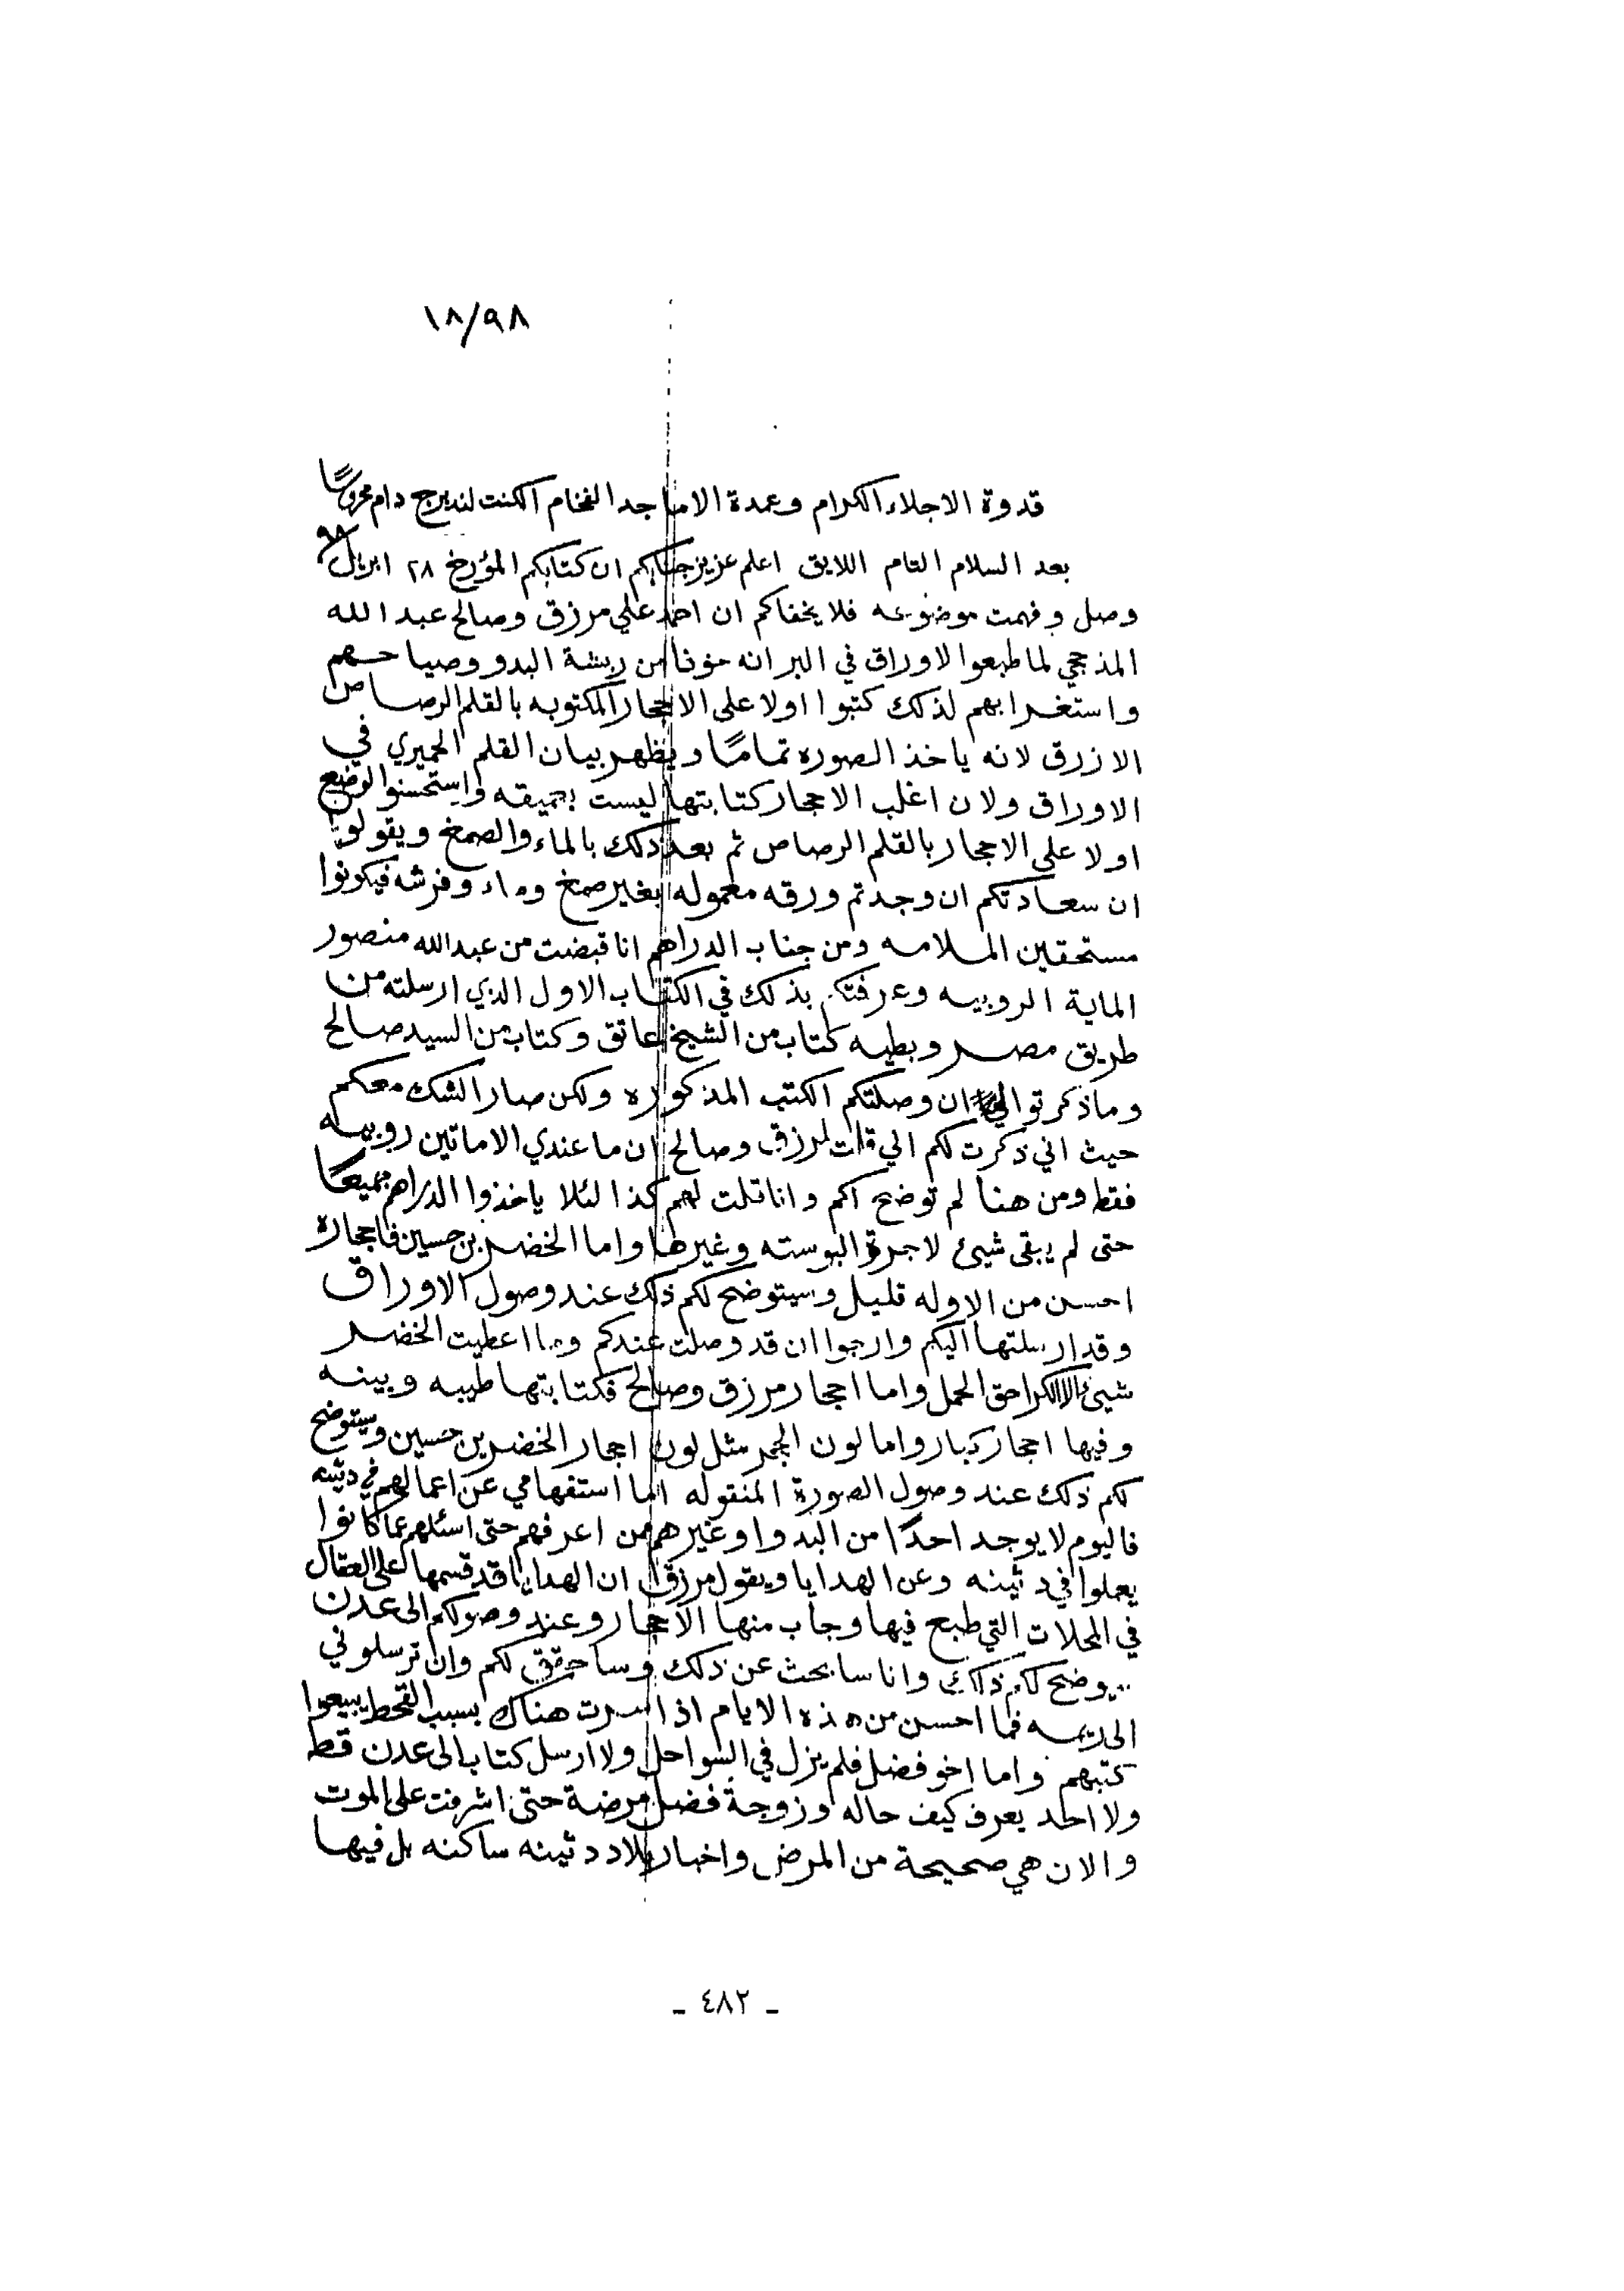 ١٨/٩٨
قدوة الاجلاء الكرام وعمدة الاماجد الفخام الكنت لندبرج دام محروسًا
بعد السلام التام اللايق اعلم عزيز جنابكم ان كتابكم المؤرخ ٢٨ ابريل ٩٨
وصل وفهمت موضوعه فلا يخفاكم ان احمد علي مرزق وصالح عبد الله
المذحجي لما طبعوا الاوراق في البر انه خوفا من ربشة البدو وصياحهم
واستغرابهم لذلك كتبوا اولا على الاحجار المكتوبه بالقلم الرصاص
الازرق لانه ياخذ الصوره تمامًا ويظهر بيان القلم الحميري في
الاوراق ولان اغلب الاحجار كتابتها ليست بعميقه واستحسنوا الوضع
اولا على الاحجار بالقلم الرصاص ثم بعد ذلك بالماء والصمغ ويقولوا
ان سعادتكم ان وجدتم ورقه معموله بغير صمغ وماء وفرشه فيكونوا
مستحقين الملامه ومن جناب الدراهم انا قبضت من عبدالله منصور
الماية الروبيه وعرفتكم بذلك في الكتاب الاول الذي ارسلته من
طريق مصر وبطيه كتاب من الشيخ عاتق وكتاب من السيد صالح
وماذكرتوا لي ان وصلتكم الكتب المذكوره ولكن صار الشك معكم
حيث اني ذكرت لكم اني قلت لمرزق وصالح ان ما عندي الا ماتين روبيه
فقط ومن هنا لم توضح لكم وانا قلت لهم كذا لئلا ياخذوا الدراهم جميعًا
حتى لم يبقى شيئ لاجرة البوسته وغيرها واما الخضر بن حسين فاحجاره
احسن من الاوله قليل وسيتوضح لكم ذلك عند وصول الاوراق
وقد ارسلتها اليكم وارجوا ان قد وصلت عندكم وما اعطيت الخضر
شيئ الا الكرا حق الجمل واما احجار مرزق وصالح فكتابتها طيبه وبينه
وفيها احجار كبار واما لون الحجر مثل لون احجار الخضر بن حسين وسيتوضح
لكم ذلك عند وصول الصورة المنقوله اما استفهامي عن اعمالهم في دثينه
فاليوم لا يوجد احدًا من البدو او غيرهم من اعرفهم حتى اسئلهم عما كانوا
يعملوا في دثينه وعن الهدايا ويقول مرزق ان الهدايا قد قسمها على العقال
في المحلات التي طبع فيها وجاب منها الاحجار وعند وصولكم الى عدن
يوضح لكم ذلك وانا سابحث عن ذلك وساحقق لكم وان ترسلوني
الى ريمه فما احسن من هذه الايام اذا سرت هناك بسبب القحط يبيعوا
كتبهم واما اخو فضل فلم يزل في السواحل ولا ارسل كتاب الى عدن قط
ولا احد يعرف كيف حاله وزوجة فضل مرضة حتى اشرفت على الموت
والان هي صحيحة من المرض واخبار بلاد دثينه ساكنه بل فيها
- ٤٨٢ -